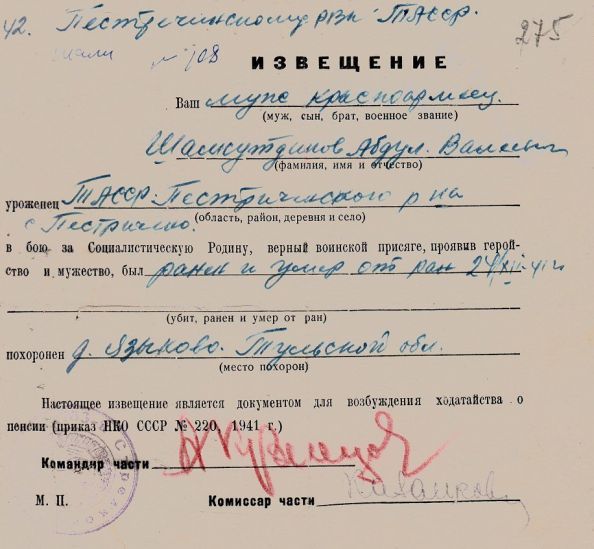 42. Пестречинскому рвк ТАССР.
№ 108
275
ИЗВЕЩЕНИЕ
Ваш муж красноармеец
(муж, сын, брат, военное звание)
Шамсутдинов Абдул. Валеевич
(фамилия, имя и отчество)
уроженец ТАССР. Пестричинского р на
(область, район, деревня и село)
с Пестричино.
в бою за Социалистическую Родину, верный воинской присяге, проявив герой-
ство и мужество, был ранен и умер от ран 24/XII-41 г
(убит, ранен и умер от ран)
похоронен д. Языково. Тульской обл.
(место похорон)
Настоящее извещение является документом для возбуждения ходатайства о
пенсии (приказ НКО СССР № 220, 1941 г.)
Командир части
М. П. Комиссар части